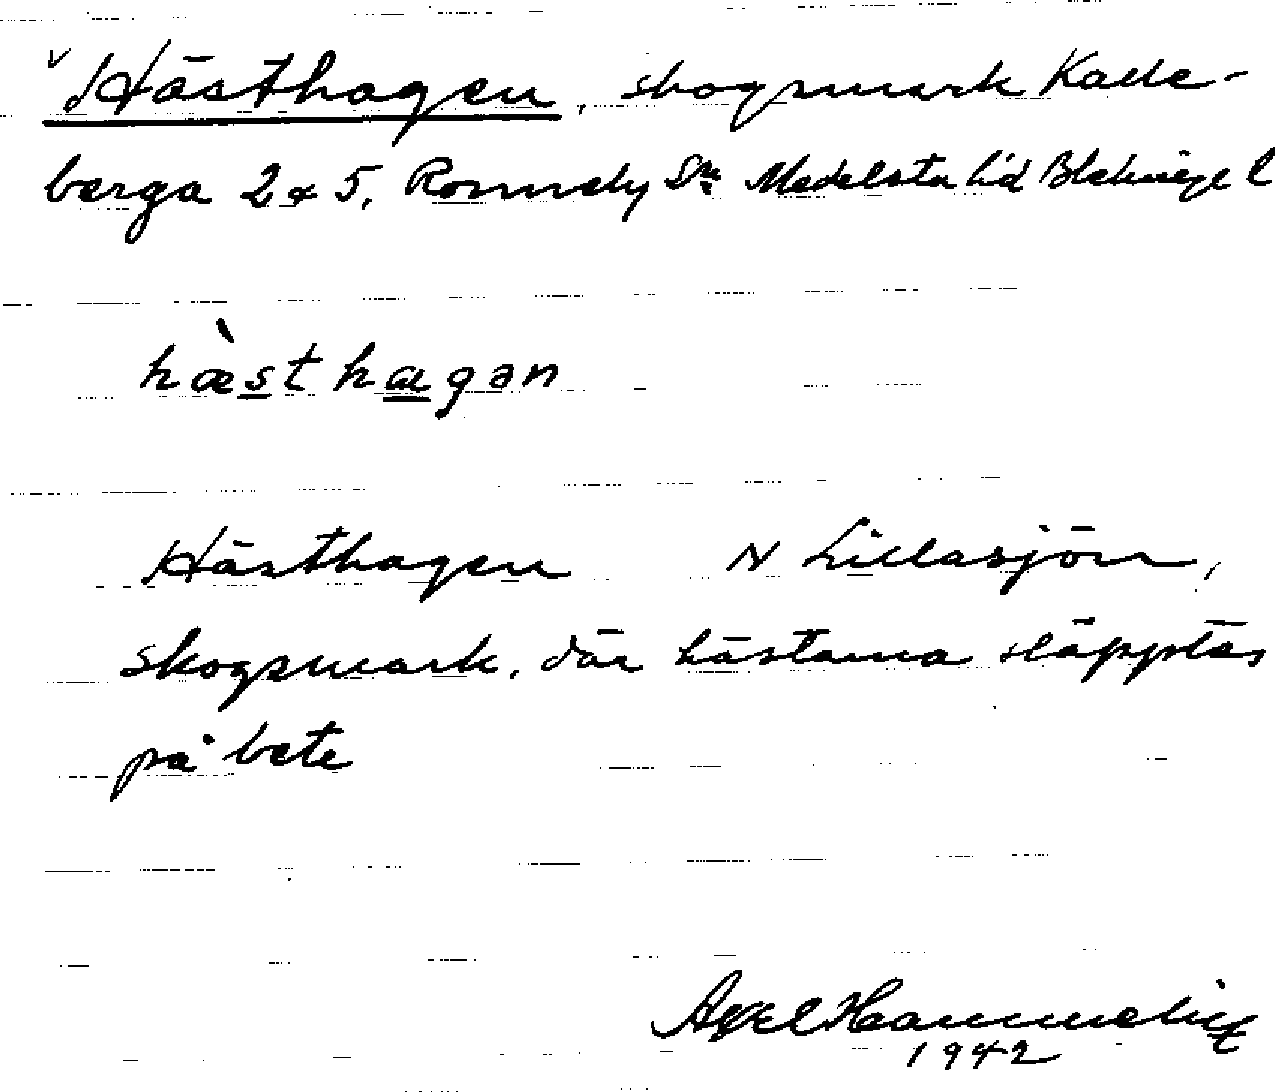 v Hästhagen, skogsmark Kalle-
berga 2 & 5, Ronneby Sn Medelsta hd Blekinge l
hæ̀st hagən
Hästhagen N Lillasjön,
skogsmark, där hästarna släpptes
på bete
Axel
1942